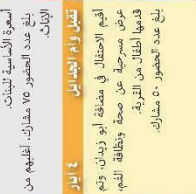 أسعرة الأساسية للبنات.
بلغ عدد الحضور ٧٥ مشارك، أغلبهم من
الإناث.
٤ أيار
تقبل وأم الجدايل
أقيم الاحتفال في مضافة أبو زيدان، وتم
عرض مسرحية عن صحة ونظافة الفم،
قدمها أطفال من القرية.
بلغ عدد الحضور ٥٠ مشارك.